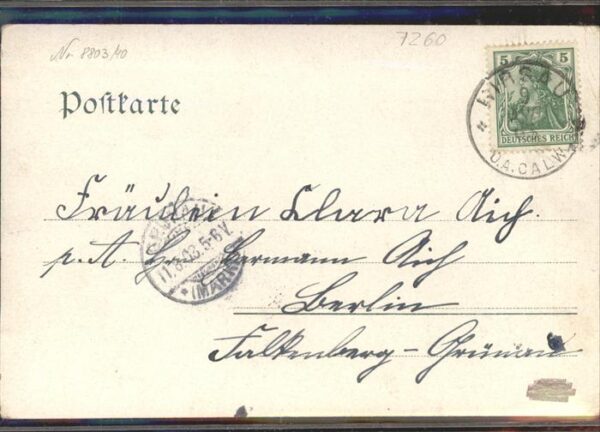 Nr 8803/40
7260
Postkarte
5 5
DEUTSCHES REICH
HIRSAU
9
O.A. CALW
Fräulein Clara Aich.
p. A. H. Hermann Aich
Berlin
Falkenberg-Grünau
11.8.03.5-6V.
*(MARK)